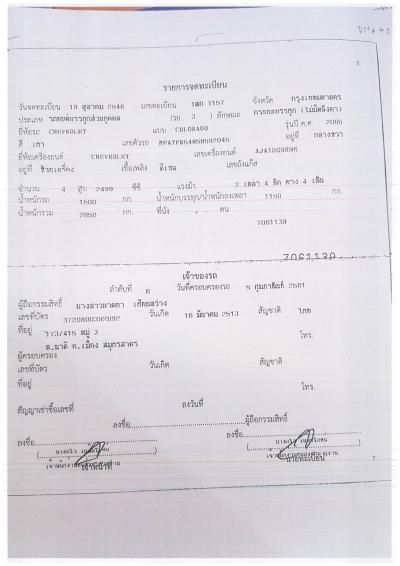 6
รายการจดทะเบียน
วันจดทะเบียน 18 ตุลาคม 2548 เลขทะเบียน 7157 จังหวัด กรุงเทพมหานคร
ประเภท รถยนต์บรรทุกส่วนบุคคล (รย. 3 ) ลักษณะ กระบะบรรทุก (ไม่มีหลังคา)
ยี่ห้อรถ CHEVROLET แบบ COLORADO รุ่นปี ค.ศ. 2005
สี เทา เลขตัวรถ อยู่ที่ กลางขวา
ยี่ห้อเครื่องยนต์ CHEVROLET เลขเครื่องยนต์
อยู่ที่ ซ้ายเครื่อง เชื้อเพลิง ดีเซล เลขถังแก๊ส
จำนวน 4 สูบ 2499 ซีซี แรงม้า 2 เพลา 4 ล้อ ยาง 4 เส้น
น้ำหนักรถ 1500 กก. น้ำหนักบรรทุก/น้ำหนักลงเพลา 1150 กก.
น้ำหนักรวม 2650 กก. ที่นั่ง คน
7061139
7061139
เจ้าของรถ
ลำดับที่ 6 วันที่ครอบครองรถ 5 กุมภาพันธ์ 2561
ผู้ถือกรรมสิทธิ์ นางสาว
เลขที่บัตร 3720800392092 วันเกิด 16 มีนาคม 2513 สัญชาติ ไทย
ที่อยู่ 173/415 หมู่ 3 โทร.
ต.นาดี อ.เมือง สมุทรสาคร
ผู้ครอบครอง
เลขที่บัตร วันเกิด สัญชาติ
ที่อยู่ โทร.
สัญญาเช่าซื้อเลขที่ ลงวันที่
ลงชื่อ ผู้ถือกรรมสิทธิ์
ลงชื่อ ลงชื่อ
เจ้าหน้าที่ นายทะเบียน
7